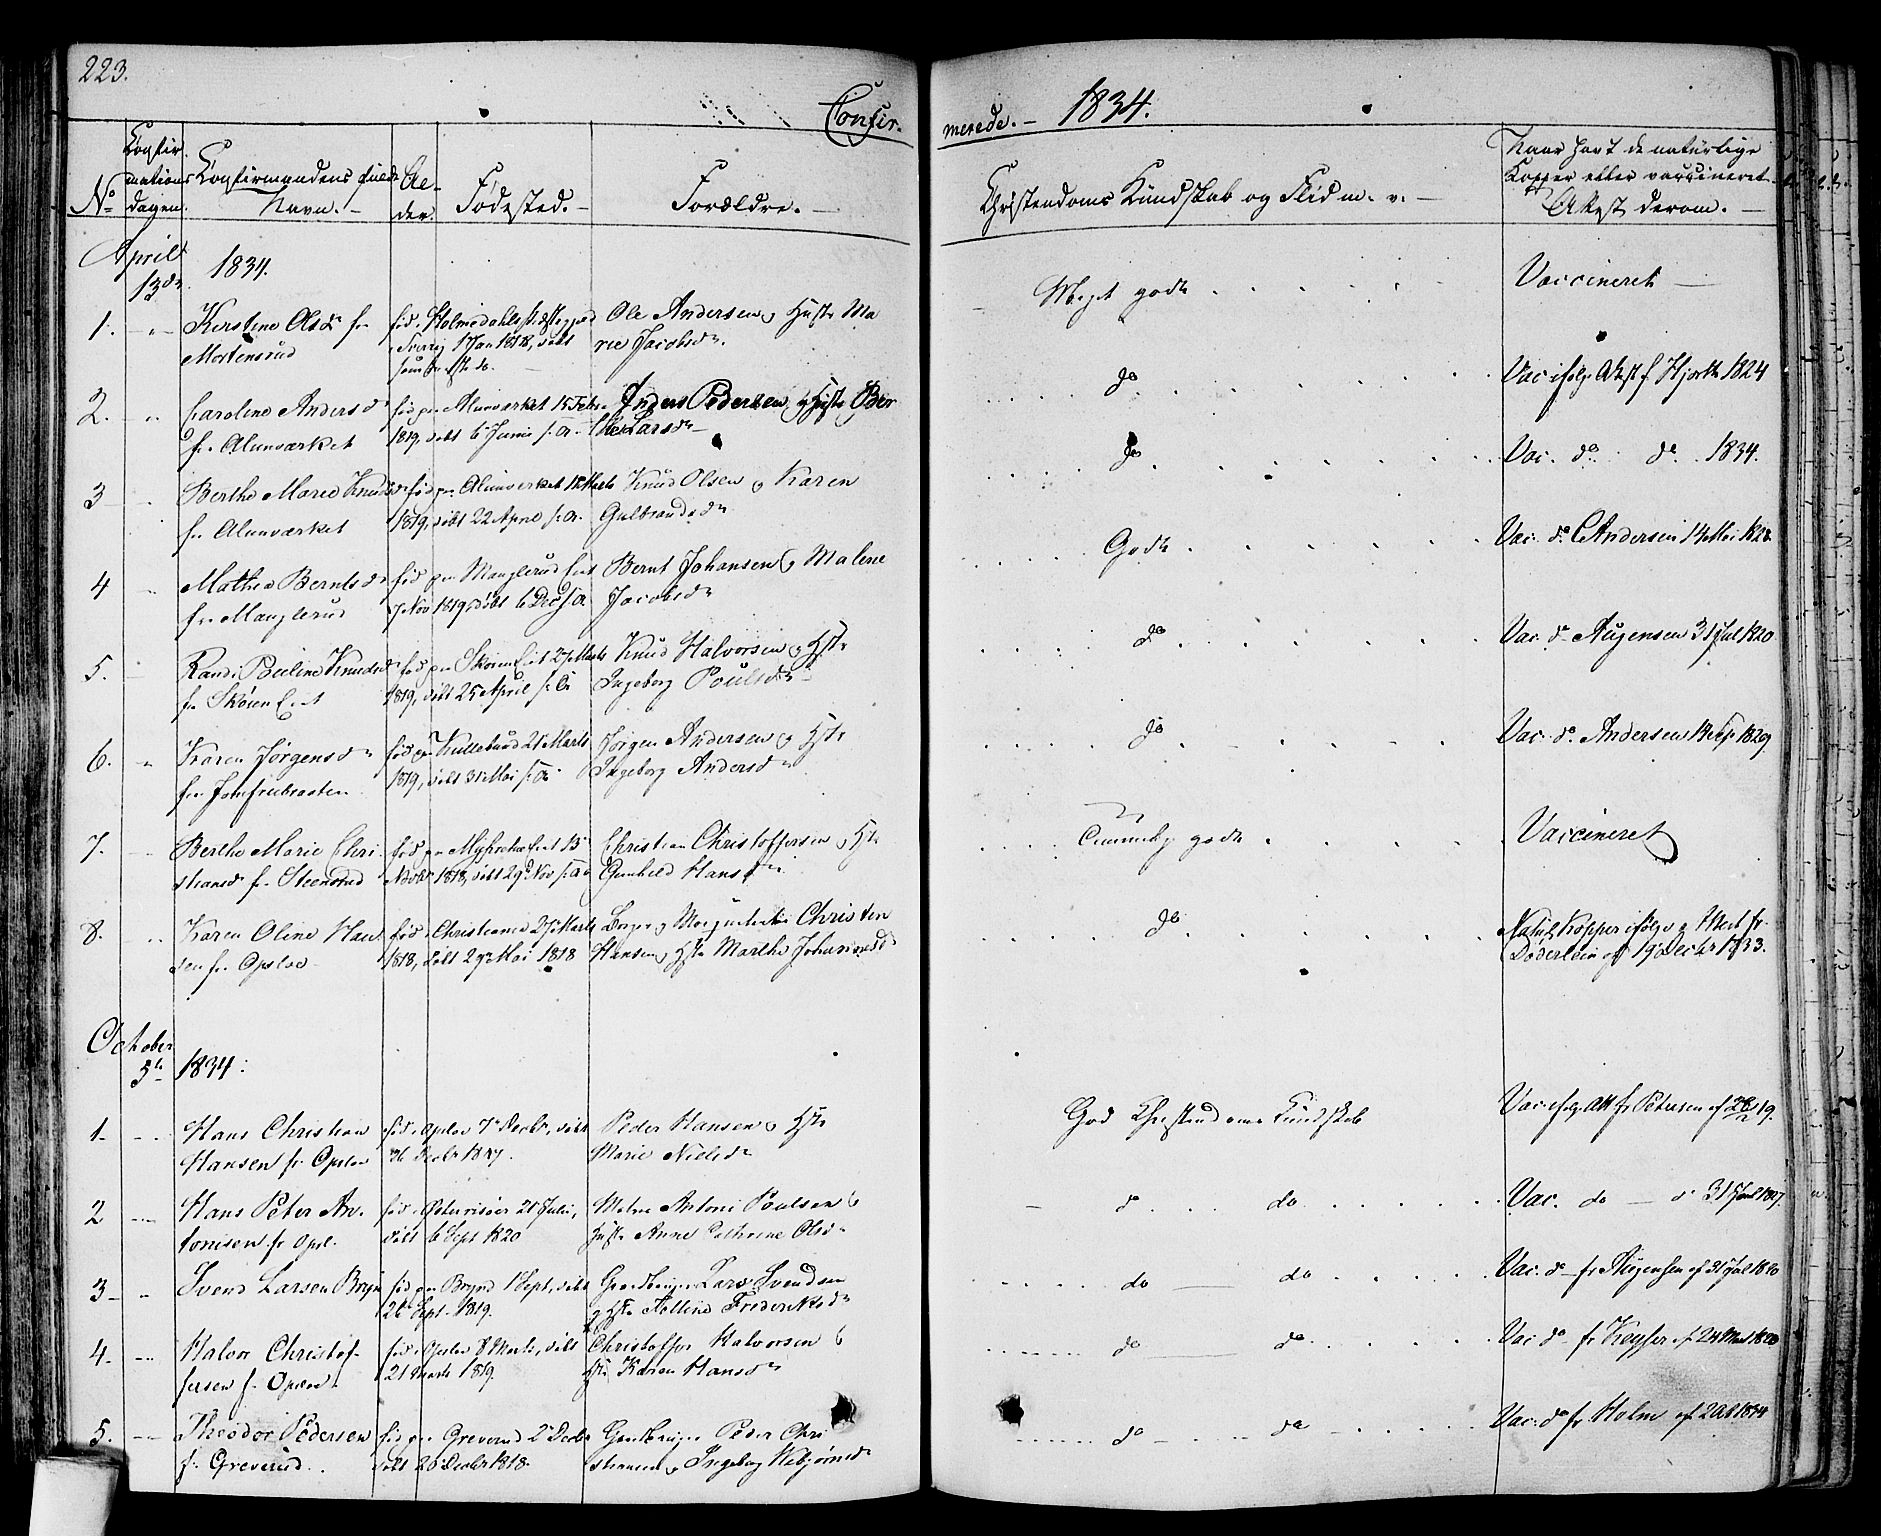 223.
Confir-
merede. - 1834.
No
Confir-
mations
dagen.
Confirmandens fulde
Navn. -
Al-
der.
Fødested. -
Forældre. -
Christendoms Kundskab og Flid m. v. -
Naar havt de naturlige
Kopper eller vaccineret
Attest derom. -
April
13de 1834.
1. Kirstine Olsdr fr
Mortensrud
Sverrig 1 Jan 1818, døbt
Ole Andersen og Hustr Ma
rie Jacobsdr.
Meget godt
Vaccineret
2. Caroline Andersdr
fr. Alunværket
fød paa Alunværket 15 Febr
1819, døbt 6 Junii s. A.
Anders Pedersen og Hustr Ber
the Larsdr
do
Vac ifølg Attst f Hjorth 1824
3 Berthe Marie Knudsdr
fr. Alunværket
fød paa Alunværket Marts
1819, døbt 22 April s. A.
Knud Olsen og Karen
Gulbrandsdr
do
Vac. do do 1834.
4 Mathea Berntsdr
fra Manglerud
fød paa Manglerud Eiet
7 Nov 1819, døbt 6 Dec s A.
Bernt Johansen og Malene
Jacobsdr
Godt
Vac. do Andersen 14 Mai
5. Randi Pauline Knudsdr
fr Skøien Eiet
fød paa Skøien Eiet 27 Marts
1819, døbt 25 April s. A.
Knud Halvorsen og Hstr
Ingeborg Poulsdr
do
Vac. do Augensen 31 Jul 1820
6. Karen Jørgensdr
fra Jomfrubraaten
fød paa 21 Marts
1819, døbt 31 Mai s. A.
Jørgen Andersen og Hstr
Ingeborg Andersdr
do
Vac. do Andersen
7. Berthe Marie Chri-
stiansdr fr. Steensrud
fød paa Eiet
Novbr 1818, døbt 29 Nov s. A.
Christian Christoffersen og Hstr
Gunhild Hansdr
Temmelig godt
Vaccineret
8. Karen Oline Han-
sen fr. Opsloe
fød i Christiania 27 Marts
1818, døbt 29 Mai 1818
Borger og Christen
Hansen og Hstr Marthe Johannesdr
do
Naturl Kopper ifølge Attest fr
Døderlein af 19 Decbr 1833.
October
5te 1834.
1. Hans Christian
Hansen fr Opsloe
fød i Opslo 7 Decbr, døbt
26 Decbr 1817.
Peder Hansen og Hstr
Marie Nielsdr
God Christendoms Kundskab
Vac ifølg Att fr Petersen af 19.
2 Hans Peter An-
tonisen fr Opsl.
fød i Østerrisøer 21 Julii,
døbt 6 Sept 1820
Antoni Poulsen &
Hustr Anne Cathrine Olsdr
do do
Vac. do do 31
3 Svend Larsen Bryn
fød paa Brynd 1 Sept, døbt
26 Sept. 1819.
Gaardbruger Lars Svendsen
og Hstr Frederiksdr
do do
Vac. do fr Augensen af 31 Jul 1820
4. Halvor Christof-
fersen f. Opsloe
fød i Opslo 8 Marts, døbt
21 Marts 1819.
Christoffer Halvorsen &
Hstr Karen Hansdr
do do
Vac do fr Keyser af 24
5. Theodor Pedersen
f. Greverud
fød paa Greverud 2 Decbr
døbt 26 Decbr 1818.
Gaardbruger Peder Chri
stiansen og Ingeborg
do do
Vac. do fr Holm af